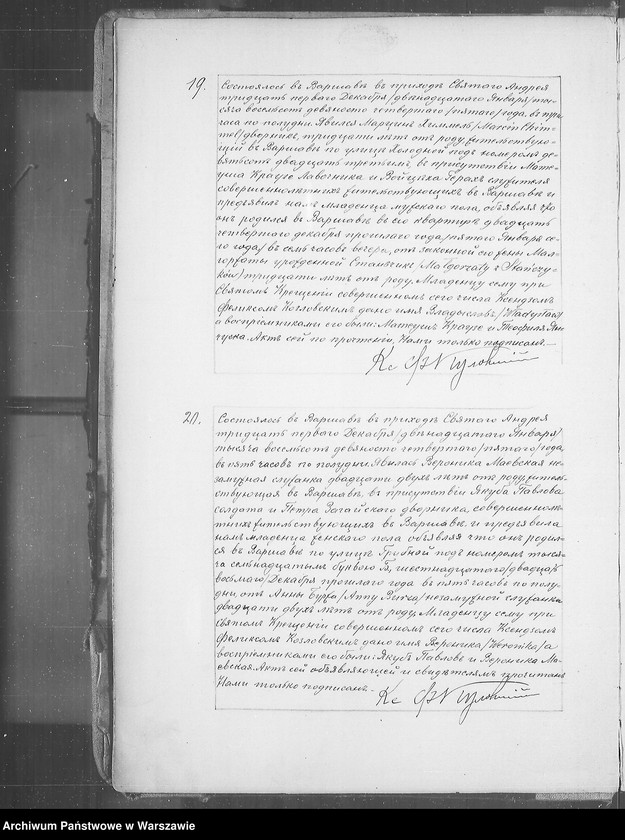 19.
Состоялось въ Варшавѣ въ приходѣ Святаго Андрея
тридцать перваго Декабря /двѣнадцатаго Января/ ты-
сяча восемьсотъ девяносто четвертаго /пятаго/ года, въ три
часа по полудни. Явился Марцинъ Химмель /Marcin Chim-
mel/ дворникъ, тридцати лѣтъ отъ роду, жительствую-
щій въ Варшавѣ по улицѣ Холодной подъ номеромъ де-
вятьсотъ двадцать третьимъ, въ присутствіи Мате-
уша Краузе лавочника и Войцѣха Герахъ служителя
совершеннолѣтнихъ жительствующихъ въ Варшавѣ и
предъявилъ намъ младенца мужскаго пола, объявляя что
онъ родился въ Варшавѣ въ его квартирѣ двадцать
четвертаго декабря прошлаго года /пятаго Января се-
го года/ въ семь часовъ вечера, отъ законной его жены Мал-
горжаты урожденной Станчикъ /Małgorzaty z Stańczy-
ków/ тридцати лѣтъ отъ роду. Младенцу сему при
Святомъ Крещеніи совершенномъ сего числа Ксендзомъ
Феликсомъ Козловскимъ дано имя Владыславъ /Władysław/
а воспріемниками его были: Матеушъ Краузе и Теофиля
Актъ сей по прочтеніи, Нами только подписанъ.
Кс
20.
Состоялось въ Варшавѣ въ приходѣ Святаго Андрея
тридцать перваго Декабря /двѣнадцатаго Января/
тысяча восемьсотъ девяносто четвертаго /пятаго/ года,
въ пять часовъ по полудни. Явилась Вероника Маевская не-
замужняя служанка двадцати двухъ лѣтъ отъ роду, житель-
ствующая въ Варшавѣ, въ присутствіи Якуба Павлова
солдата и Петра дворника, совершеннолѣ-
тнихъ жительствующихъ въ Варшавѣ, и предъявила
намъ младенца женскаго пола объявляя что онъ родил-
ся въ Варшавѣ по улицѣ подъ номеромъ тыся-
ча семьнадцатымъ буквою шестнадцатаго /двадцать
восьмаго/ Декабря прошлаго года въ пять часовъ по полу-
дни, отъ Анны незамужней служанки
двадцати двухъ лѣтъ отъ роду. Младенцу сему при
святомъ Крещеніи совершенномъ сего числа Ксендзомъ
Феликсомъ Козловскимъ дано имя Вероника /Weronika/ а
воспріемниками его были: Якубъ Павловъ и Вероника Ма-
евская. Актъ сей объявляющей и свидѣтелямъ прочитанъ
Нами только подписанъ.
Кс
Archiwum Państwowe w Warszawie